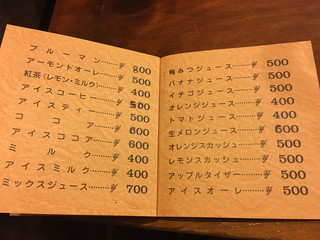 ブルーマン……〃 800
アーモンドオーレ……〃 500
紅茶(レモン・ミルク)……〃 400
アイスコーヒー……〃
アイスティー……〃 500
ココア……〃 600
アイスココア……〃 600
ミルク……〃 400
アイスミルク……〃 400
ミックスジュース……〃 700
梅みつジュース……〃 500
バナナジュース……〃 500
イチゴジュース……〃 500
オレンジジュース……〃 400
トマトジュース……〃 400
生メロンジュース……〃 600
オレンジスカッシュ……〃 500
レモンスカッシュ……〃 500
アップルタイザー……〃 500
アイスオーレ……〃 500